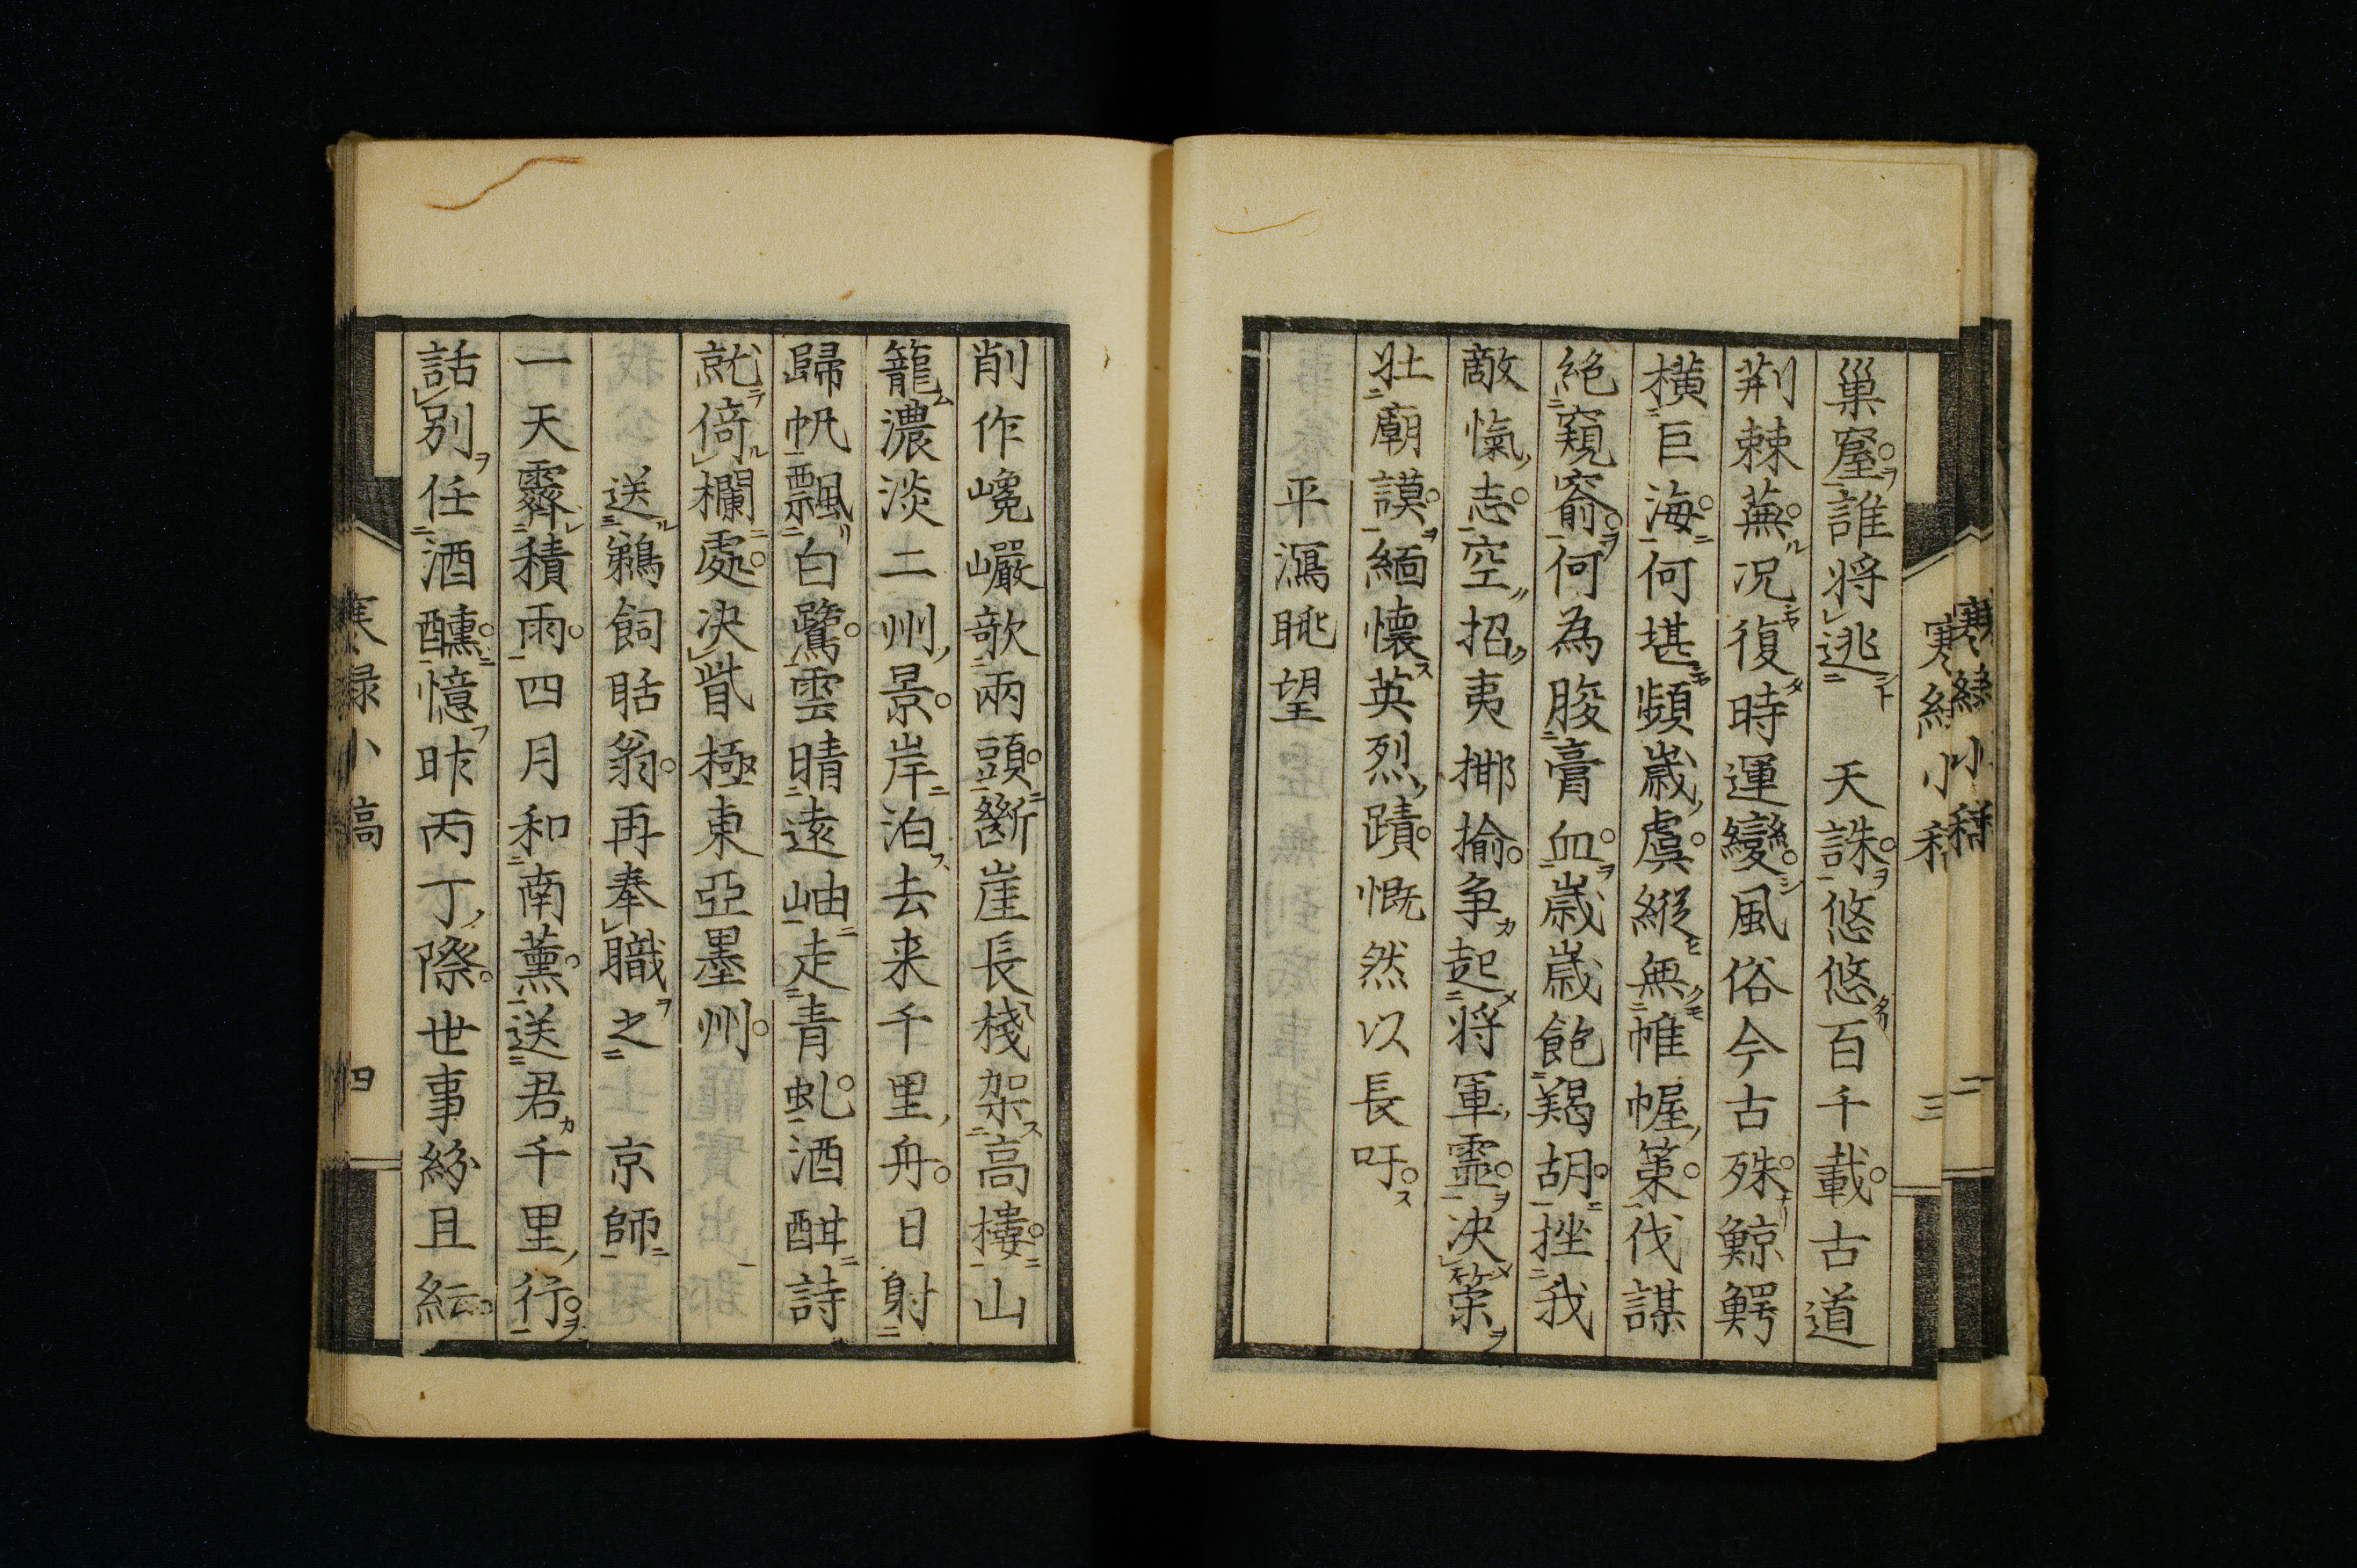 寒緑小稿 二
寒緑小稿 三
巢窟。誰將逃 天誅。悠悠百千載。古道
荆棘蕪。况復時運變。風俗今古殊。鯨鰐
横巨海。何堪頻歳虞。縱無帷幄策。伐謀
絶窺窬。何為朘膏血。歳歳飽羯胡。挫我
敵愾志。空招夷揶揄。争起將軍靈。决策
壯廟謨。緬懷英烈蹟。慨然以長吁。
平瀉眺望
削作巉巗欹兩頭。斷崖長棧架高樓。山
籠濃淡二州景。岸泊去来千里舟。日射
歸帆飄白鷺。雲晴遠岫走青虬。酒酣詩
就倚欄處。决眥極東亞墨州。
送鵜飼聒翁。再奉職之 京師
一天霽積雨。四月和南薰。送君千里行。
話別任酒醺。憶昨丙丁際。世事紛且紜。
寒緑小稿 四